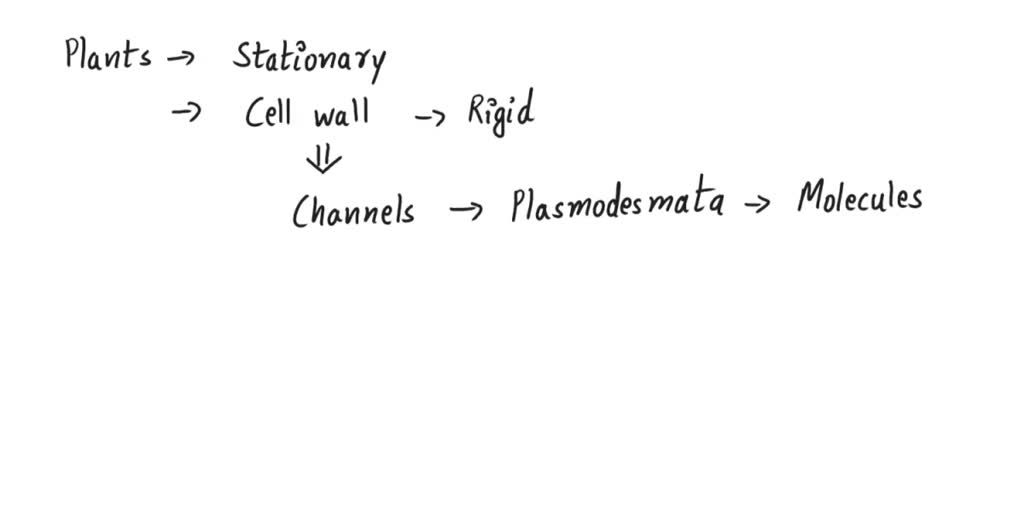 Plants → Stationary
→ Cell wall → Rigid
⇓
Channels → Plasmodesmata → Molecules